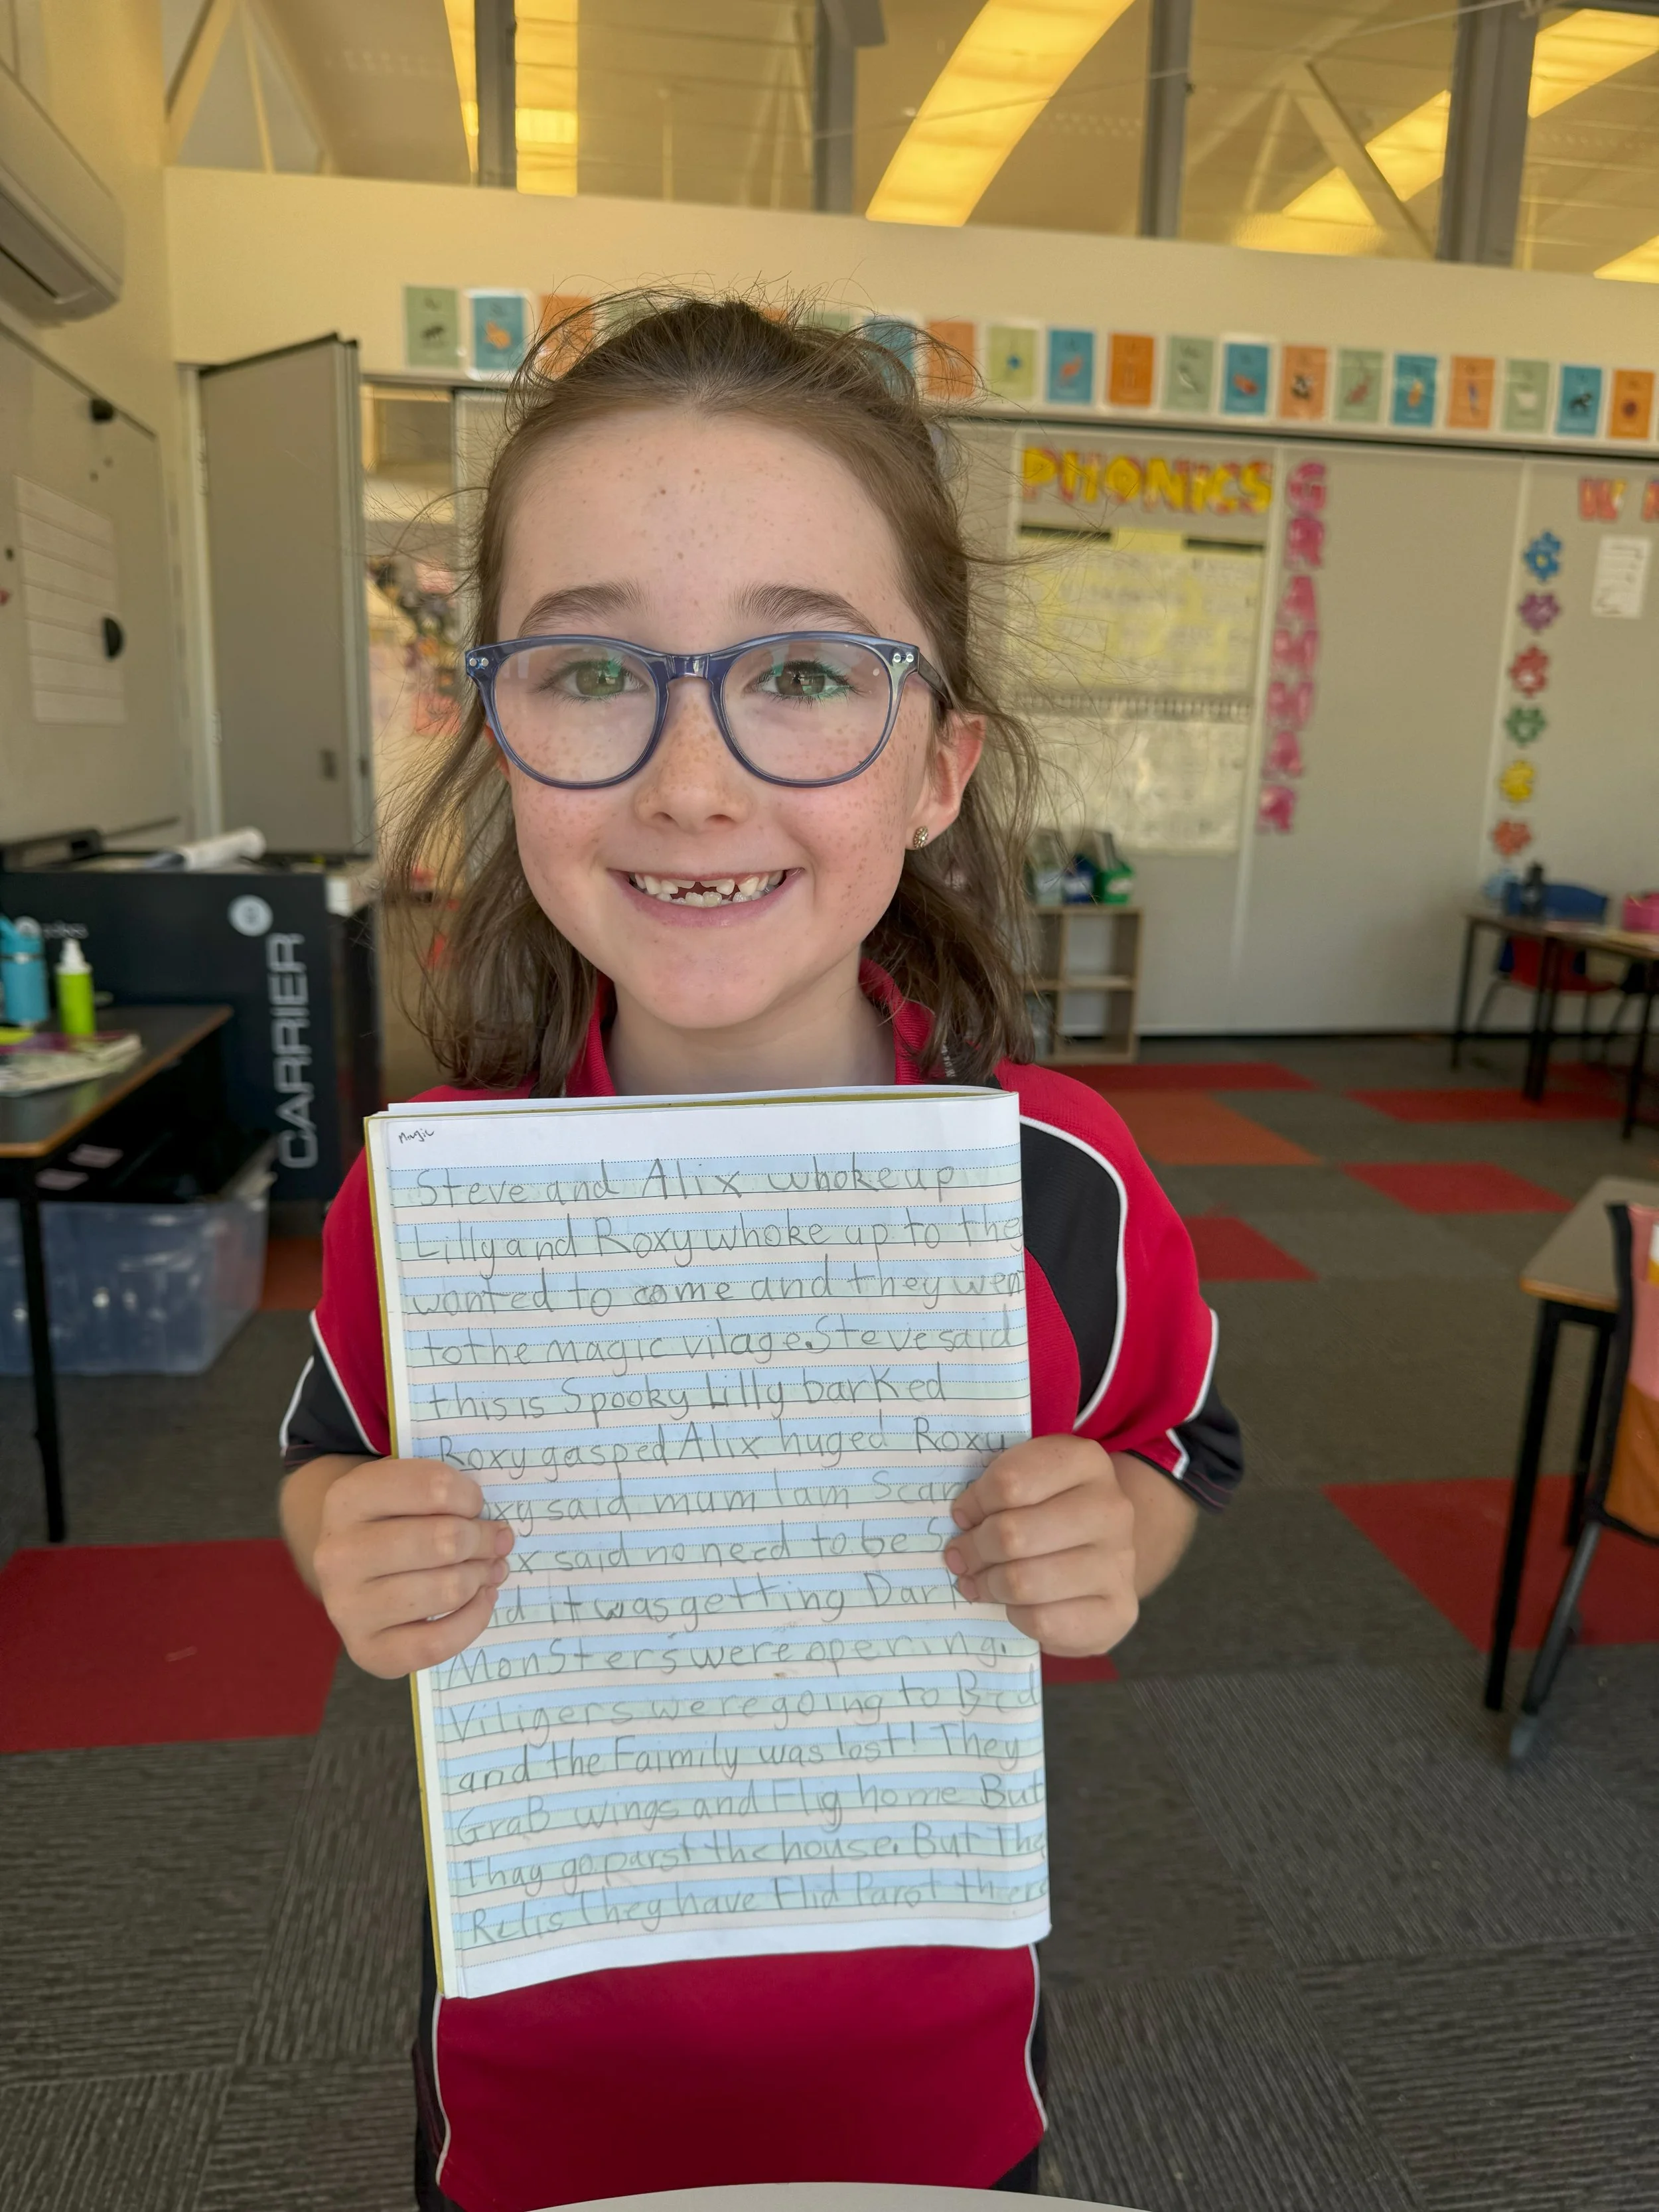 PHONICS
GRAMMAR
CARRIER
Magic
Steve and Alix whoke up
Lilly and Roxy whoke up to they
wanted to come and they wen
to the magic vilage. Steve said
this is Spooky Lilly barked
Roxy gasped Alix huged Roxy
oxy said mum I am Scar
x said no need to be S
id it was getting Dark
MonSters were opering.
Viligers were going to Bed
and the Faimily was lost! They
GraB wings and Flig home But
Thay go parst the house. But The
Relis They have Flid Parot there